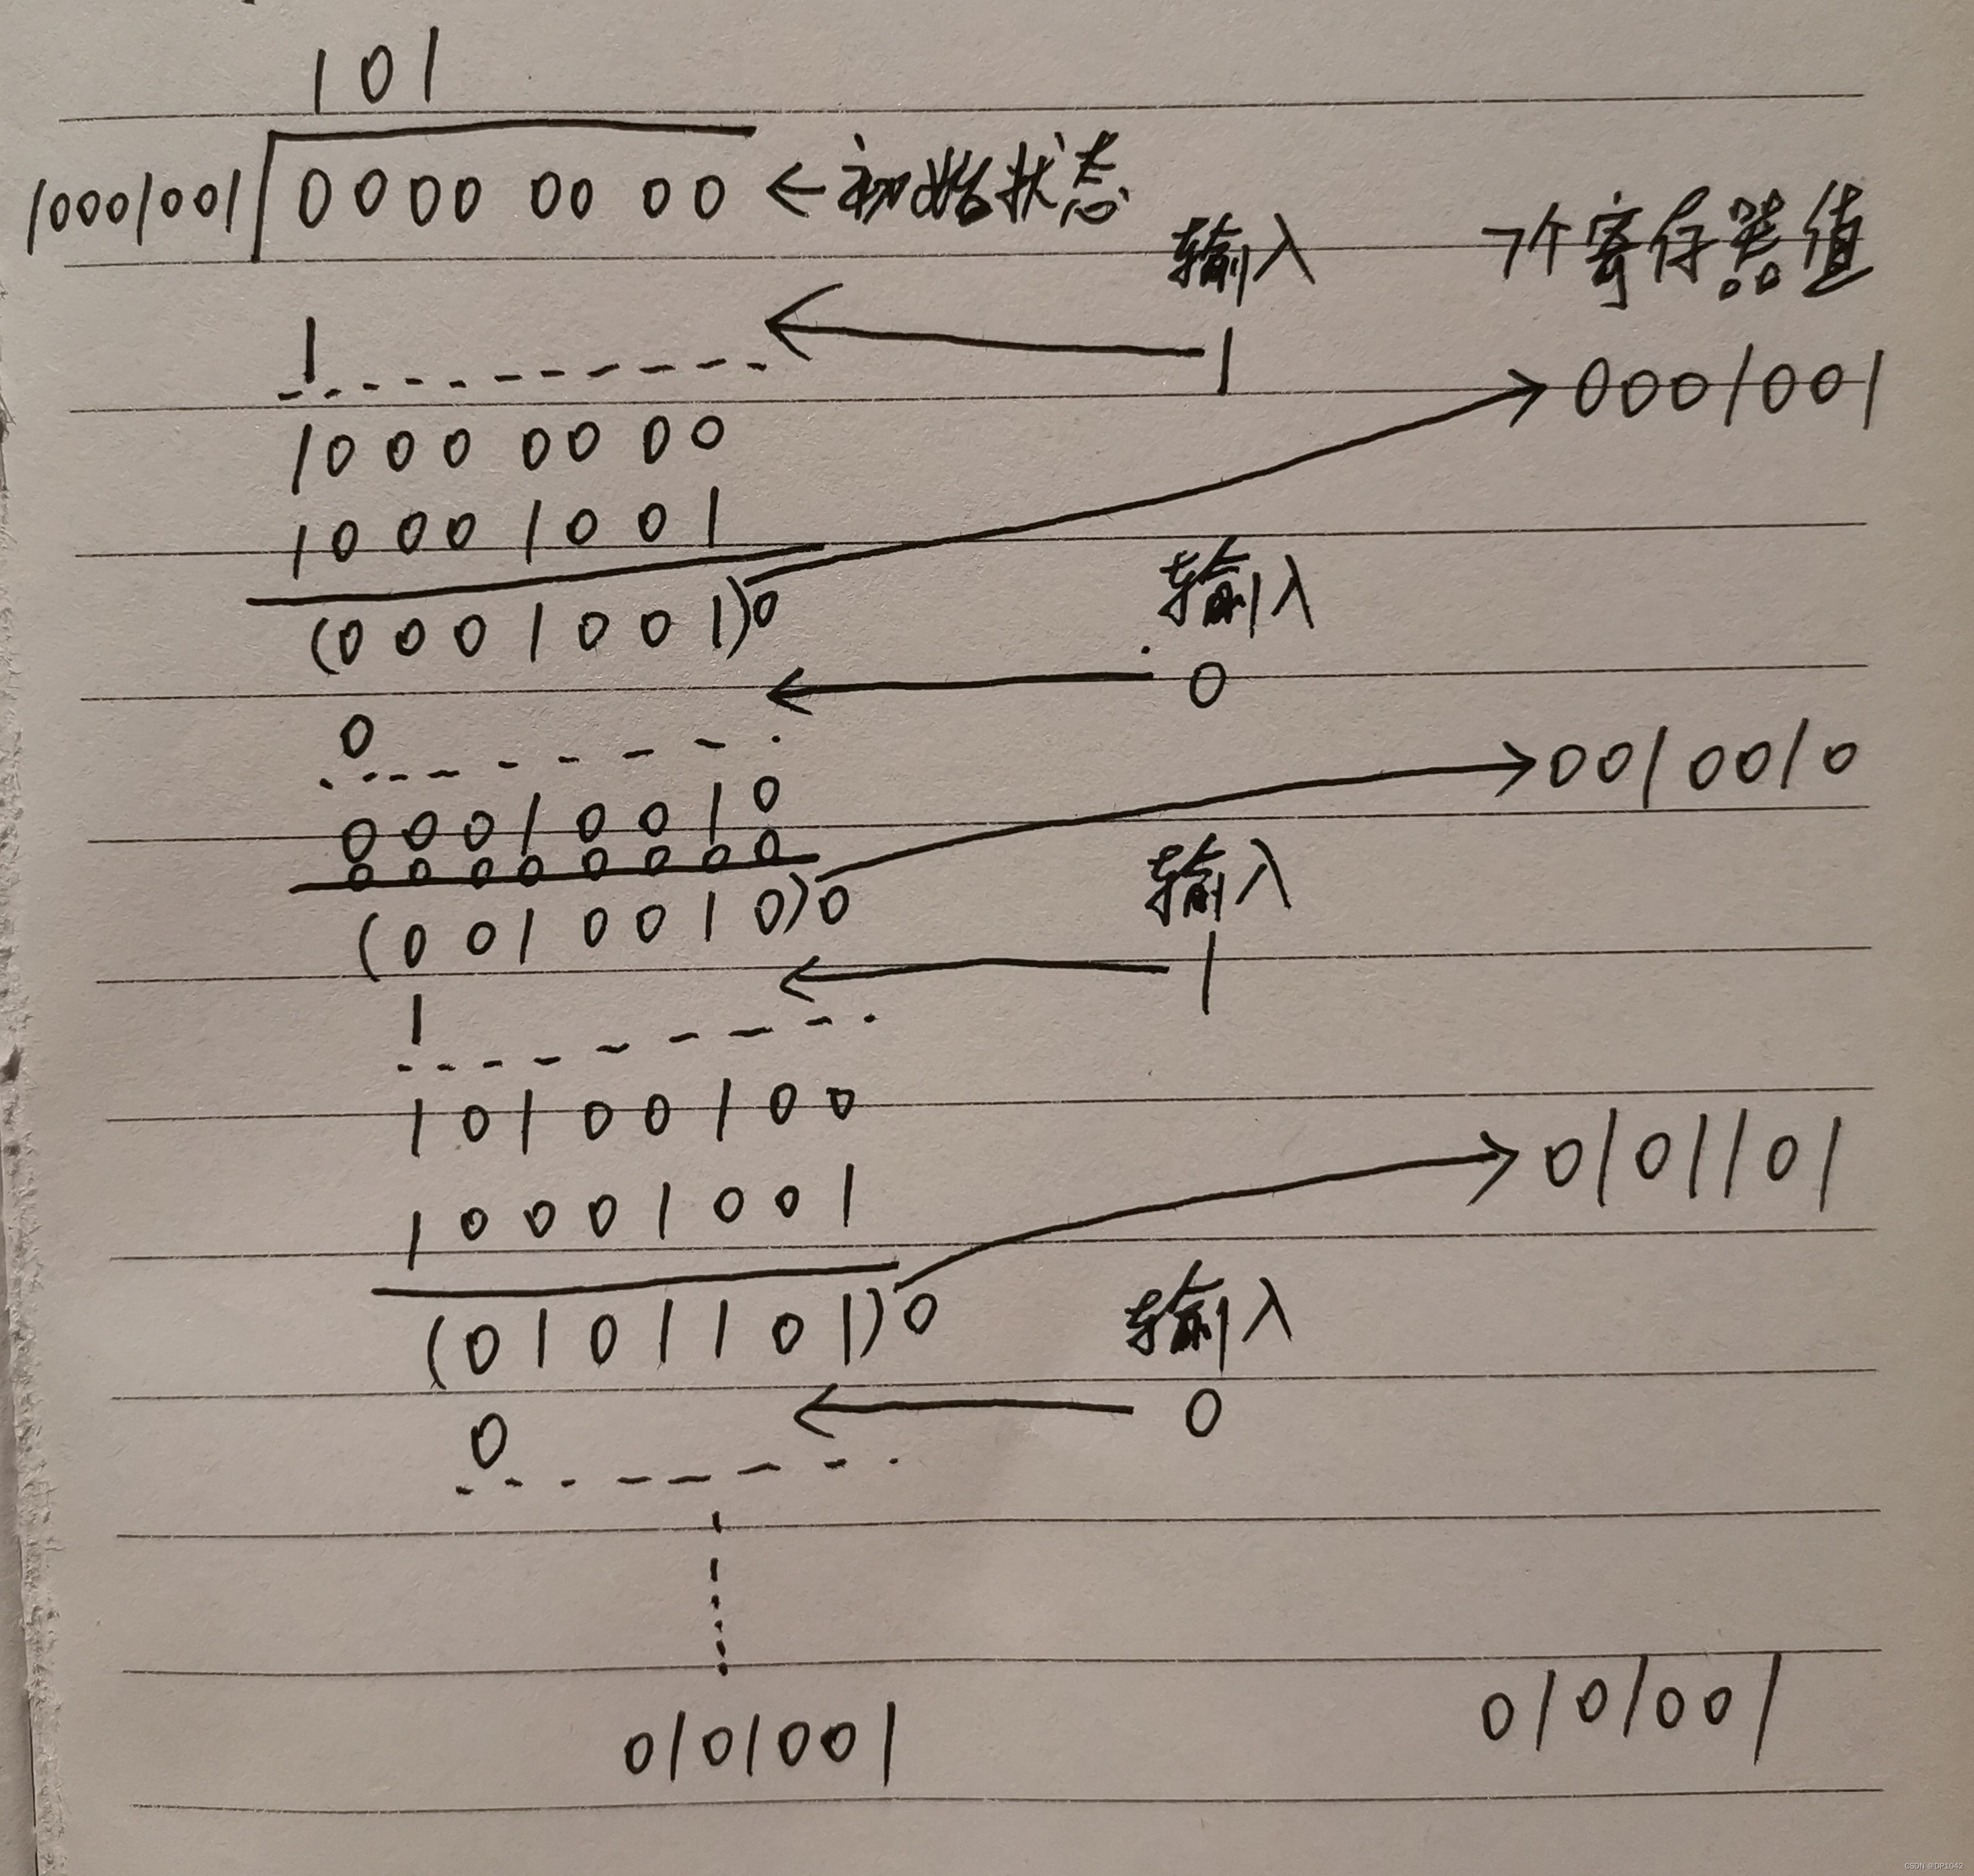 101
10001001 0000 00 00 ← 初始状态
输入 7个寄存器值
1 1
1000 00 00 0001001
1000 1001
(0001001)0 输入
0
0
00010010 0010010
00000000
(0010010)0 输入
1
1
10100100
10001001 0101101
(0101101)0 输入
0
0
0101001 0101001
CSDN @DP1042